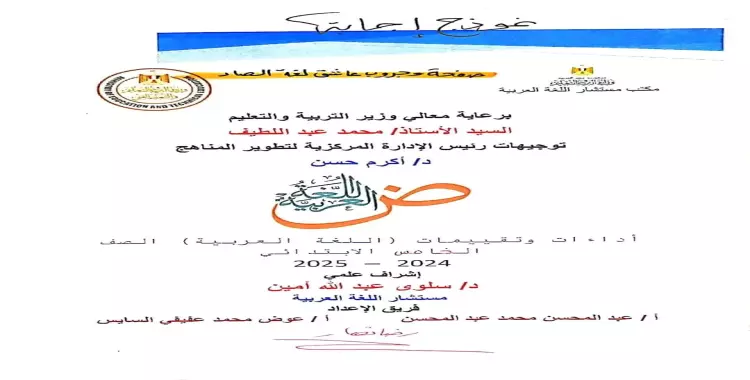 نموذج إجابة
صفحة وجروب عاشق لغة الضاد
مكتب مستشار اللغة العربية
برعاية معالي وزير التربية والتعليم
السيد الأستاذ/ محمد عبد اللطيف
توجيهات رئيس الإدارة المركزية لتطوير المناهج
د/ أكرم حسن
ض اللغة العربية
أداءات وتقييمات (اللغة العربية) الصف
الخامس الابتدائي
2024 – 2025
إشراف علمي
د/ سلوى عبد الله أمين
مستشار اللغة العربية
فريق الإعداد
أ / عبد المحسن محمد عبد المحسن
أ / عوض محمد عفيفي السايس